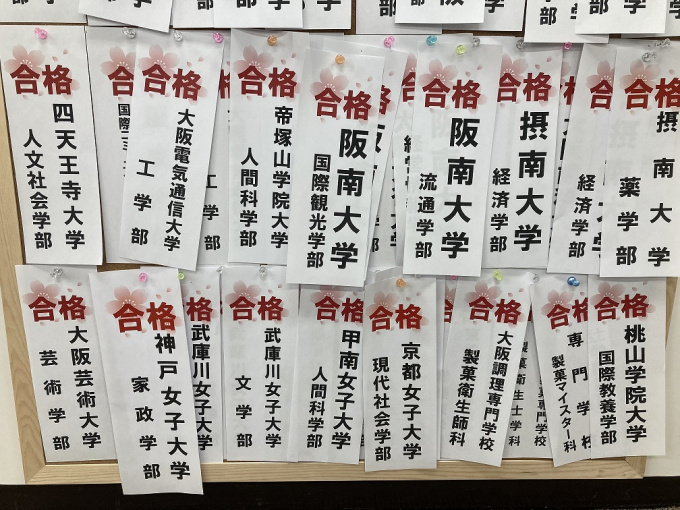 合格
四天王寺大学
人文社会学部
合格
大阪電気通信大学
工学部
合格
帝塚山学院大学
人間科学部
合格
阪南大学
国際観光学部
合格
阪南大学
流通学部
合格
摂南大学
経済学部
合格
経済学部
合格
摂南大学
薬学部
合格
大阪芸術大学
芸術学部
合格
神戸女子大学
家政学部
合格
武庫川女子大学
合格
武庫川女子大学
文学部
合格
甲南女子大学
人間科学部
合格
京都女子大学
現代社会学部
合格
大阪調理製菓専門学校
製菓衛生師科
合格
専門学校
製菓マイスター科
合格
桃山学院大学
国際教養学部